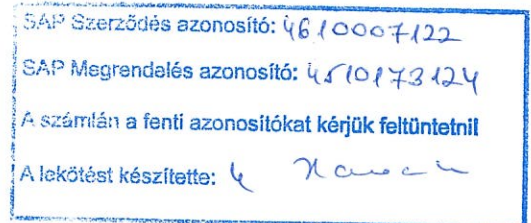 SAP Szerződés azonosító: 4610007122
SAP Megrendelés azonosító: 4510173124
A számlán a fenti azonosítókat kérjük feltüntetni!
A lekötést készítette: